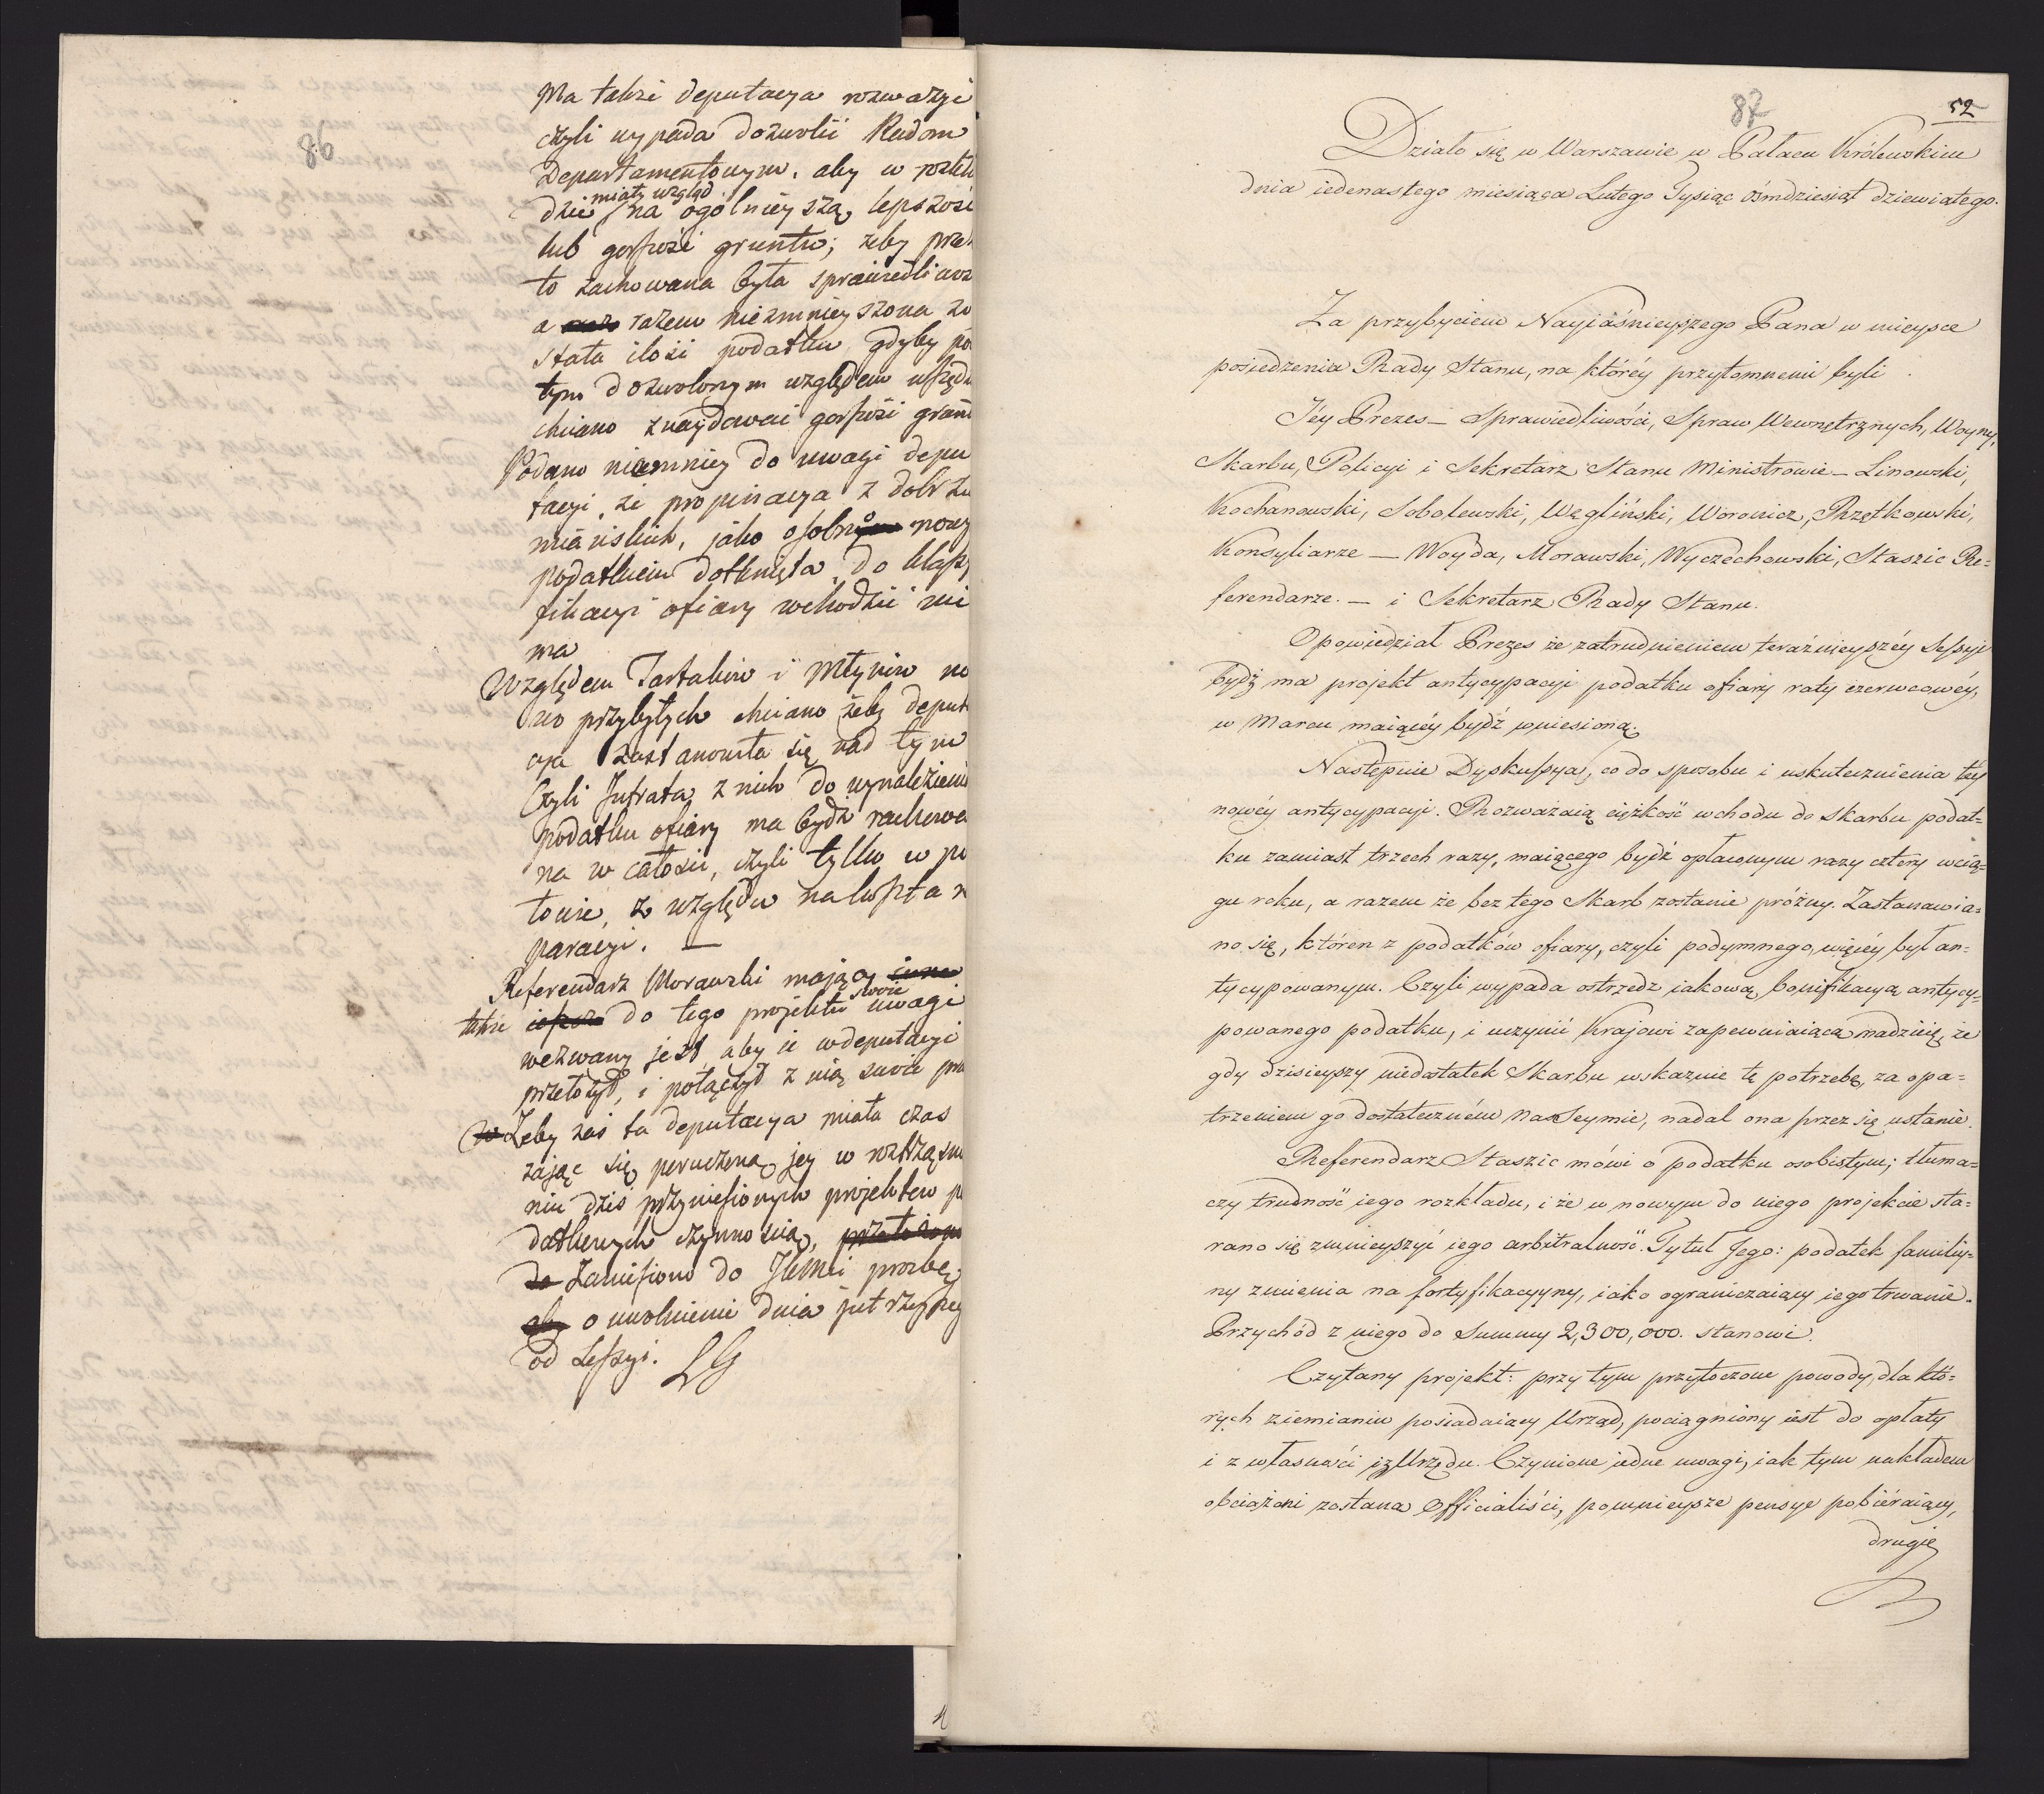 86
Ma takze deputacya rozwarzyc
czyli wypada dozwolic Radom
Departamentowym, aby w rozkla
miały wzgląd
dzie na ogolnieyszą lepszosc
lub gorszosc gruntu; zeby prze
to zachowana była sprawiedliwoz
a razem niezmnieyszona zo
stała ilosc podatku gdyby po
tym dozwolonym względem wszędzie
chciano znaydowac gorszosc grunt
Podano niemniey do uwagi depu
tacyi, ze propinacya z dobr zie
mianskich, jako osobno nowy
podatkiem dotknięta, do klassy
fikacyi ofiary wchodzic nie
ma
Względem Tartakow i Młynow no
wo przybyłych chciano zeby deput
cya zastanowiła się nad tym
Czyli Intrata z nich do wynalezienia
podatku ofiary ma bydz rachowa
na w całosci, czyli tylko w po
łowie, z względu na koszta re
paracyi. —
Referendarz Morawski mający
także do tego projektu swoie uwagi
wezwany jest, aby ie w deputacyi
przełożył, i połączył z nią swoie pra
Zeby zas ta deputacya miała czas
zająć się poruczoną jey w roztrząsa
niu dzis przyniesionych projektow po
datkowych czynnoscią,
Zaniesiono do JKMci prozbę
o uwolnienie dnia jutrzeyszego
od Sessyi. LG
87
52
Działo się w Warszawie w Pałacu Królewskim
dnia iedenastego miesiąca Lutego Tysiąc ośmdziesiąt dziewiątego.
Za przybyciem Nayiaśnieyszego Pana w mieysce
posiedzenia Rady Stanu, na któréy przytomnemi byli
Jéy Prezes — Sprawiedliwości, Spraw Wewnętrznych, Woyny,
Skarbu, Policyi i Sekretarz Stanu Ministrowie — Linowski,
Kochanowski, Sobolewski, Węgliński, Woronicz, Rzętkowski,
Konsyliarze — Woyda, Morawski, Wyczechowski, Staszic Re=
ferendarze. — i Sekretarz Rady Stanu.
Opowiedział Prezes że zatrudnieniem teraźnieyszéy Sessyi
bydź ma projekt antycypacyi podatku ofiary raty czerwcowéy,
w Marcu maiącéy bydź wniesioną.
Następnie Dyskussya, co do sposobu i uskutecznienia téy
nowéy antycypacyi. Rozważaią ciężkość wchodu do Skarbu podat=
ku zamiast trzech razy, maiącego bydź opłaconym razy cztery wcią=
gu roku, a razem że bez tego Skarb zostanie próżny. Zastanawia=
no się, któren z podatków ofiary, czyli podymnego, więcéy był an=
tycypowanym. Czyli wypada ostrzedz iakową bonifikacyą antycy=
powanego podatku, i uczynić Krajowi zapewniaiącą nadzieię, że
gdy dzisieyszy niedostatek Skarbu wskazuie tę potrzebę, za opa=
trzeniem go dostateczném na Seymie, nadal ona przez się ustanie.
Referendarz Staszic mówi o podatku osobistym; tłuma=
czy trudność iego rozkładu, i że w nowym do niego projekcie sta=
rano się zmnieyszyć iego arbitralność. Tytuł Jego: podatek familiy=
ny zmienia na fortyfikacyyny, iako ograniczaiący iego trwanie.
Przychód z niego do Summy 2,300,000. stanowi.
Czytany projekt: przy tym przytoczone powody, dla któ=
rych ziemianin posiadaiący Urząd, pociągniony iest do opłaty
i z własności i z Urzędu. Czynione iedne uwagi, iak tym nakładem
obciążoni zostaną Officialiści, pomnieysze pensye pobiéraiący,
drugie